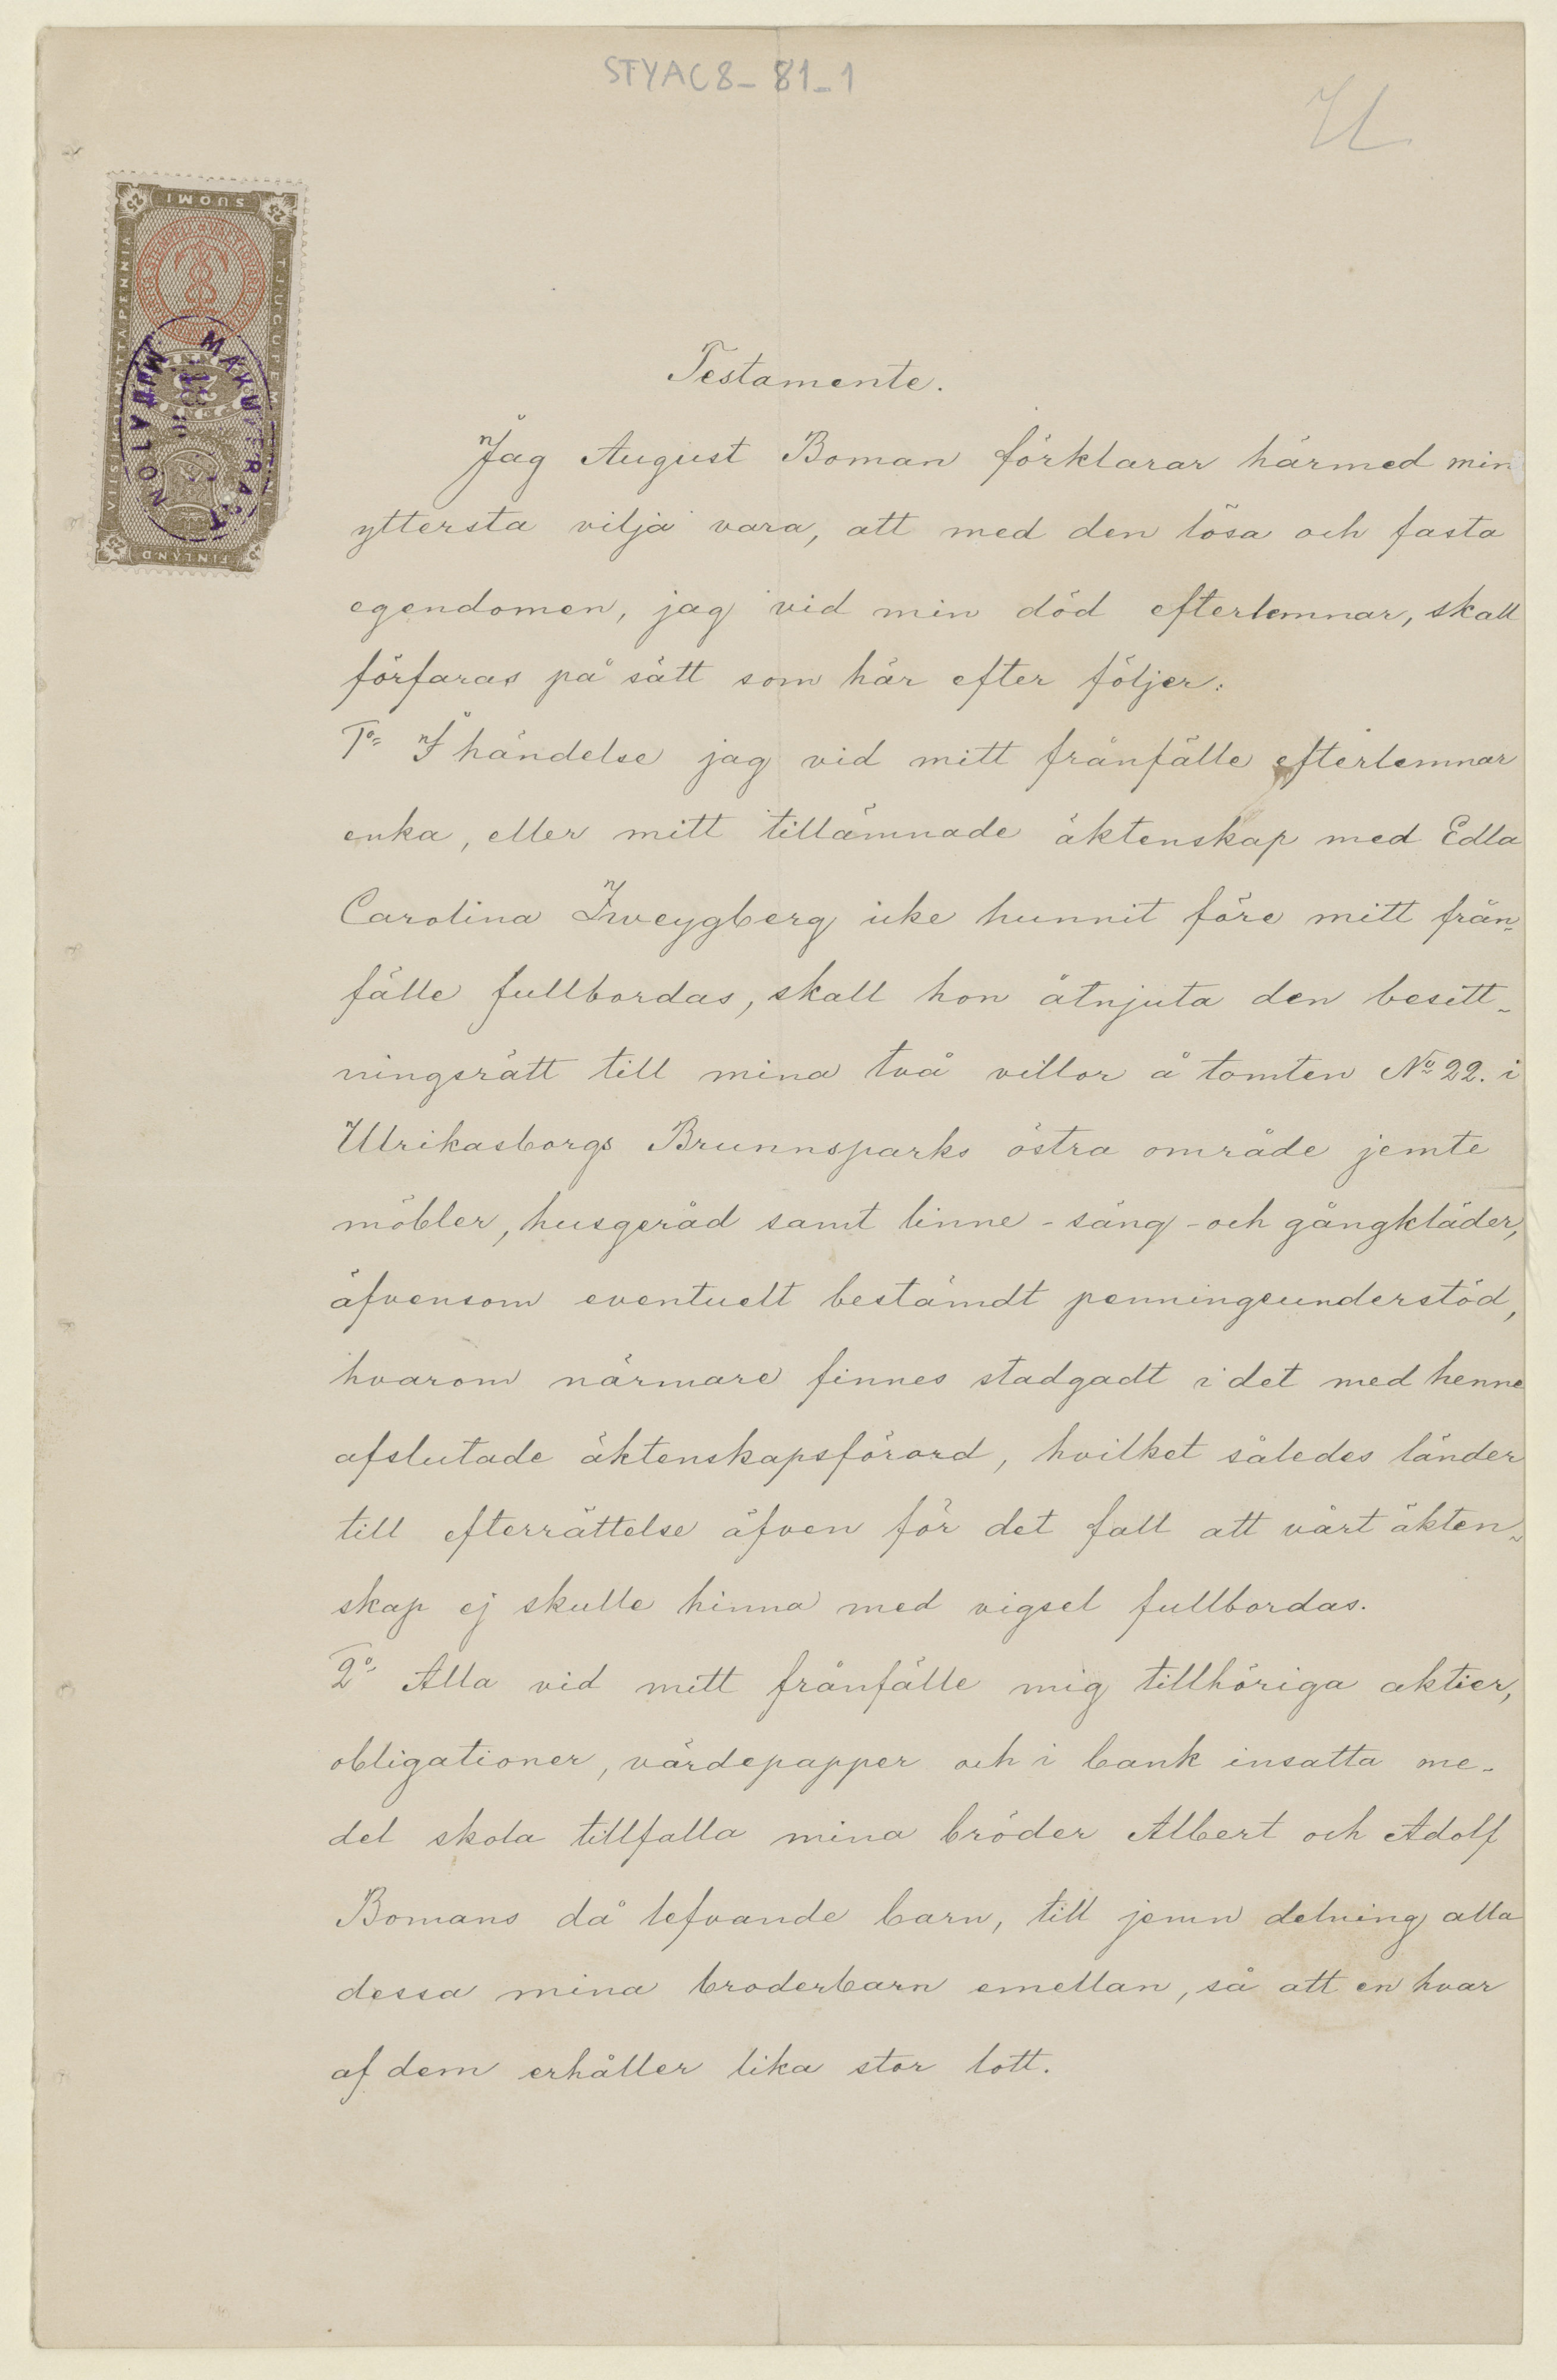 STYAC8_81_1
SUOMI
TJUGUFEM
VIISKOLMATTAPENNIÄ
25
FINLAND
MAKULERAD
Testamente.
Jag August Boman förklarar härmed min
yttersta vilja vara, att med den lösa och fasta
egendomen, jag vid min död efterlemnar, skall
förfaras på sätt som här efter följer:
1o I händelse jag vid mitt frånfälle efterlemnar
enka, eller mitt tillämnade äktenskap med Edla
Carolina Zweygberg icke hunnit före mitt från-
fälle fullbordas, skall hon åtnjuta den besitt-
ningsrätt till mina två villor å tomten No 22. i
Ulrikasborgs Brunnsparks östra område jemte
möbler, husgeråd samt linne - säng - och gångkläder,
äfvensom eventuelt bestämdt penningeunderstöd,
hvarom närmare finnes stadgadt i det med henne
afslutade äktenskapsförord, hvilket således länder
till efterrättelse äfven för det fall att vårt äkten-
skap ej skulle hinna med vigsel fullbordas.
2o Alla vid mitt frånfälle mig tillhöriga aktier,
obligationer, värdepapper och i bank insatta me-
del skola tillfalla mina bröder Albert och Adolf
Bomans då lefvande barn, till jemn delning alla
dessa mina broderbarn emellan, så att en hvar
af dem erhåller lika stor lott.